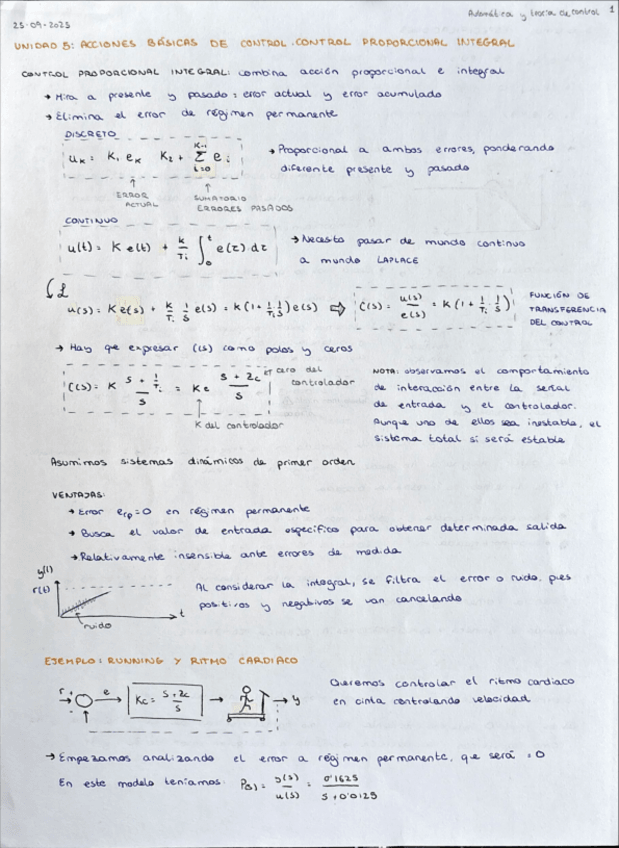 Automática y teoría de control 1
25·09·2025
UNIDAD 5: ACCIONES BÁSICAS DE CONTROL. CONTROL PROPORCIONAL INTEGRAL
CONTROL PROPORCIONAL INTEGRAL: combina acción proporcional e integral
→ Mira a presente y pasado: error actual y error acumulado
→ Elimina el error de régimen permanente
DISCRETO
u_K = K_1 e_K K_2 + Σ_{i=0}^{K-1} e_i
→ Proporcional a ambos errores, ponderando
diferente presente y pasado
ERROR ACTUAL
SUMATORIO ERRORES PASADOS
CONTINUO
u(t) = K e(t) + K/Ti ∫_0^t e(τ) dτ
→ Necesito pasar de mundo continuo
a mundo LAPLACE
↓ℒ
u(s) = K e(s) + K/Ti 1/s e(s) = K (1 + 1/Ti 1/s) e(s) ⇒ C(s) = u(s)/e(s) = K (1 + 1/Ti · 1/s)
FUNCIÓN DE
TRANSFERENCIA
DEL CONTROL
→ Hay que expresar C(s) como polos y ceros
C(s) = K (s + 1/Ti)/s = Kc (s + zc)/s
cero del
controlador
K del controlador
NOTA: observamos el comportamiento
de interacción entre la señal
de entrada y el controlador.
Aunque uno de ellos sea inestable, el
sistema total si será estable
Asumimos sistemas dinámicos de primer orden
VENTAJAS:
→ Error e_rp = 0 en régimen permanente
→ Busca el valor de entrada específico para obtener determinada salida
→ Relativamente insensible ante errores de medida
y(t)
r(t)
t
ruido
Al considerar la integral, se filtra el error o ruido, pues
positivos y negativos se van cancelando
EJEMPLO: RUNNING Y RITMO CARDIACO
r + e Kc = (s + zc)/s y
-
Queremos controlar el ritmo cardiaco
en cinta controlando velocidad
→ Empezamos analizando el error a régimen permanente, que será = 0
En este modelo teníamos: P(s) = y(s)/u(s) = 0'1625/(s + 0'0125)